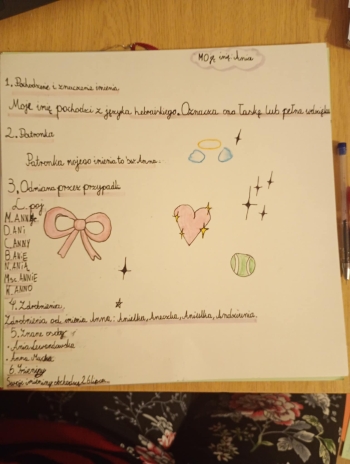 Moje imię Ania
1. Pochodzenie i znaczenie imienia.
Moje imię pochodzi z języka hebrajskiego. Oznacza ona łaskę lub pełna wdzięku
2. Patronka
Patronka mojego imienia to św. Anna.
3. Odmiana przez przypadki
L. poj
M. ANNA
D. ANI
C. ANNY
B. ANĘ
N. ANIĄ
Msc. ANNIE
W. ANNO
4. Zdrobnienia,
Zdrobnienia od imienia Anna: Anielka, Anulka,
5. Znane osoby
- Ania Lewandowska
- Anna Mucha
6. Imieniny
Swoje imieniny obchodzę 26 Lipca.